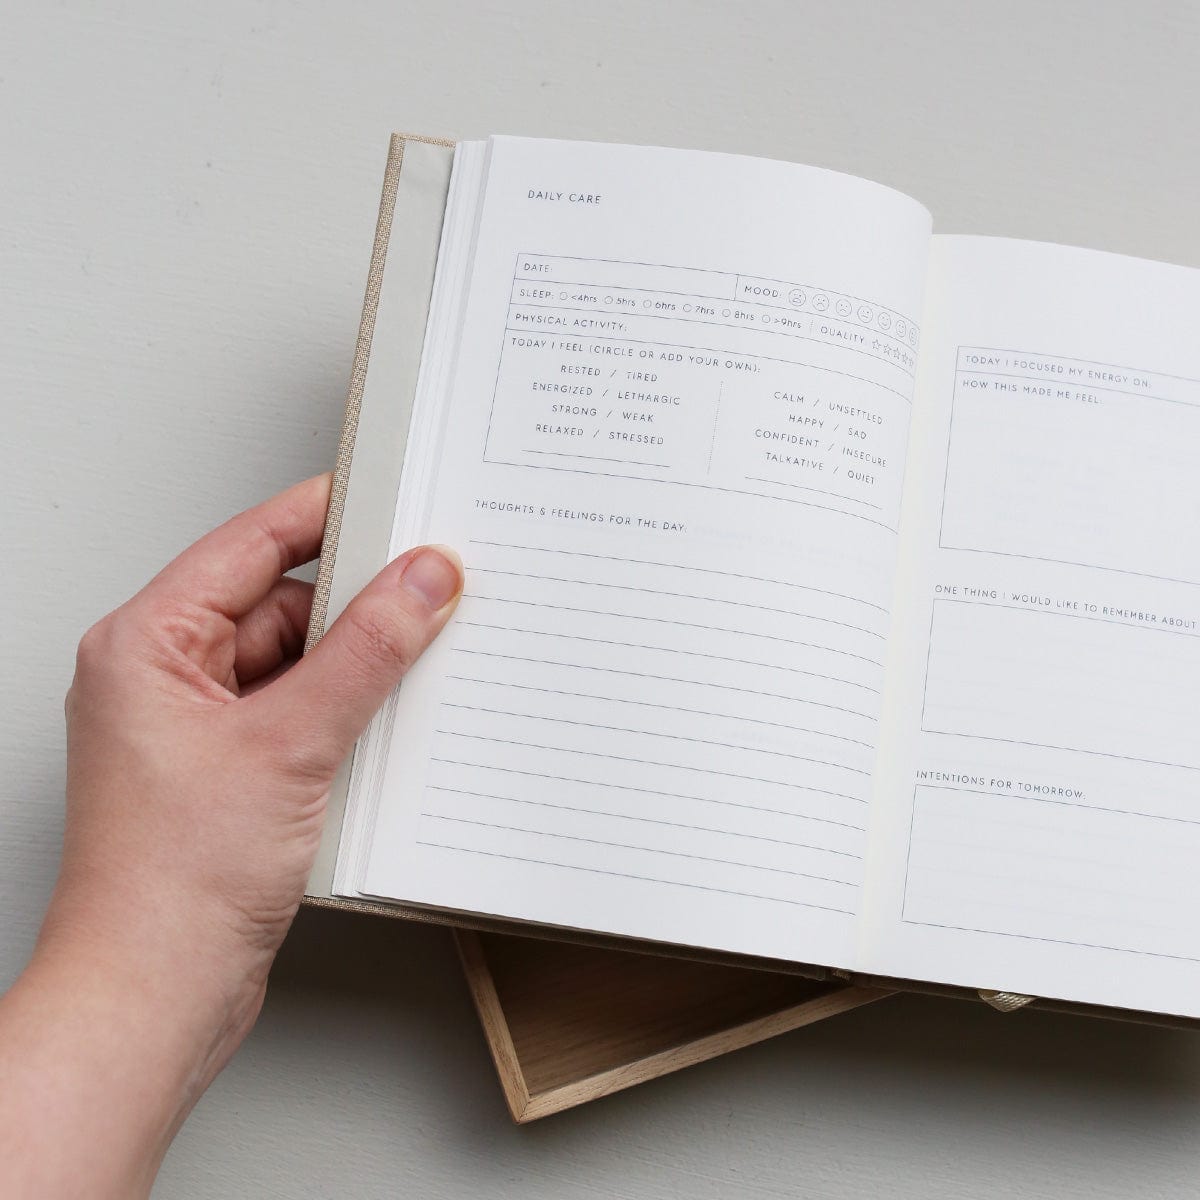 DAILY CARE
DATE:
MOOD:
SLEEP: <4hrs 5hrs 6hrs 7hrs 8hrs >9hrs QUALITY
PHYSICAL ACTIVITY:
TODAY I FEEL (CIRCLE OR ADD YOUR OWN):
RESTED / TIRED
ENERGIZED / LETHARGIC
STRONG / WEAK
RELAXED / STRESSED
CALM / UNSETTLED
HAPPY / SAD
CONFIDENT / INSECURE
TALKATIVE / QUIET
THOUGHTS & FEELINGS FOR THE DAY:
TODAY I FOCUSED MY ENERGY ON:
HOW THIS MADE ME FEEL:
ONE THING I WOULD LIKE TO REMEMBER ABOUT
INTENTIONS FOR TOMORROW: